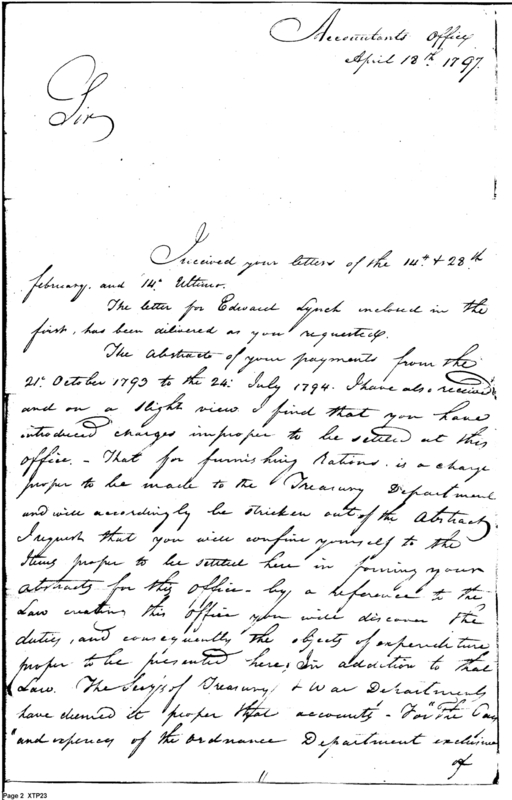 Accountants Office
April 18th. 1797.
Sir
I received your letters of the 14th. & 28th
february. and 14th. Ultimo.
The letter for Edward Lynch inclosed in the
first, has been delivered as you requested.
The Abstracts of your payments from the
21st. October 1793 to the 24. July 1794. I have also received
and on a slight view I find that you have
introduced charges improper to be settled at this
office. - That for furnishing Rations is a charge
proper to be made to the Treasury Department
and will accordingly be stricken out of the Abstract.
I request that you will confine yourself to the
Items proper to be settled here in forming your
abstracts for this Office - by a reference to the
Law creating this office you will discover the
duties, and consequently the objects of expenditure
proper to be presented here, In addition to that
Law. The Secys of Treasury & War Departments
have deemed it proper that accounts - For "The Pay
"and expences of the Ordnance Department exclusive
of
Page 2 XTP23